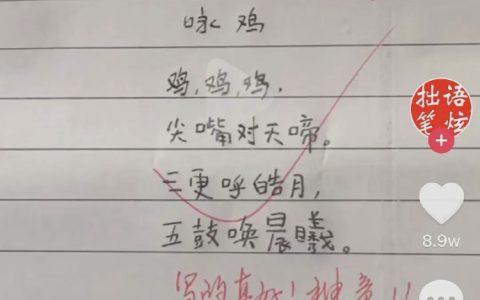 咏鸡
鸡,鸡,鸡,
尖嘴对天啼。
三更呼皓月,
五鼓唤晨曦。
写的真好!神童!!
拙语
笔炫
8.9w